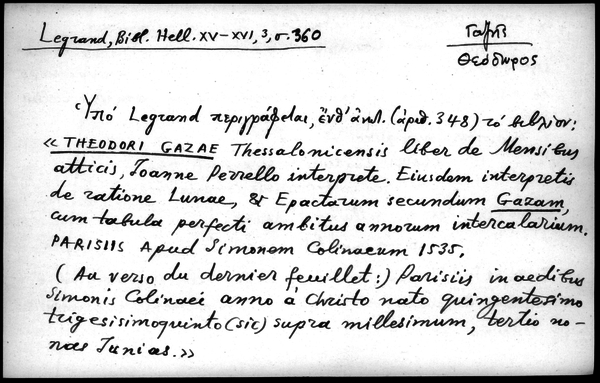 Legrand, Bibl. Hell. XV–XVI, 3, σ. 360
Γαζῆς
Θεόδωρος
Ὑπό Legrand περιγράφεται, ἔνθ' ἀνωτ. (ἀριθ. 348) τό βιβλίον:
«THEODORI GAZAE Thessalonicensis liber de Mensibus
atticis, Joanne Perrello interprete. Eiusdem interpretis
de ratione Lunae, & Epactarum secundum Gazam,
cum tabula perfecti ambitus annorum intercalarium.
PARISIIS Apud Simonem Colinaeum 1535.
(Au verso du dernier feuillet:) Parisiis in aedibus
Simonis Colinaei anno à Christo nato quingentesimo
trigesisimoquinto (sic) supra millesimum, tertio no-
nas Junias.»